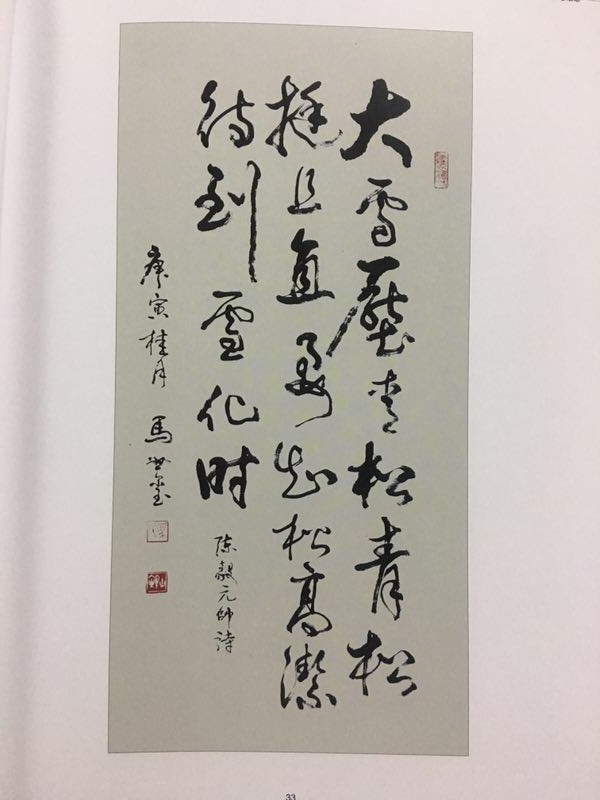 大雪壓青松青松
挺且直要知松高潔
待到雪化时
陈毅元帥詩
庚寅桂月 馬世玺
33